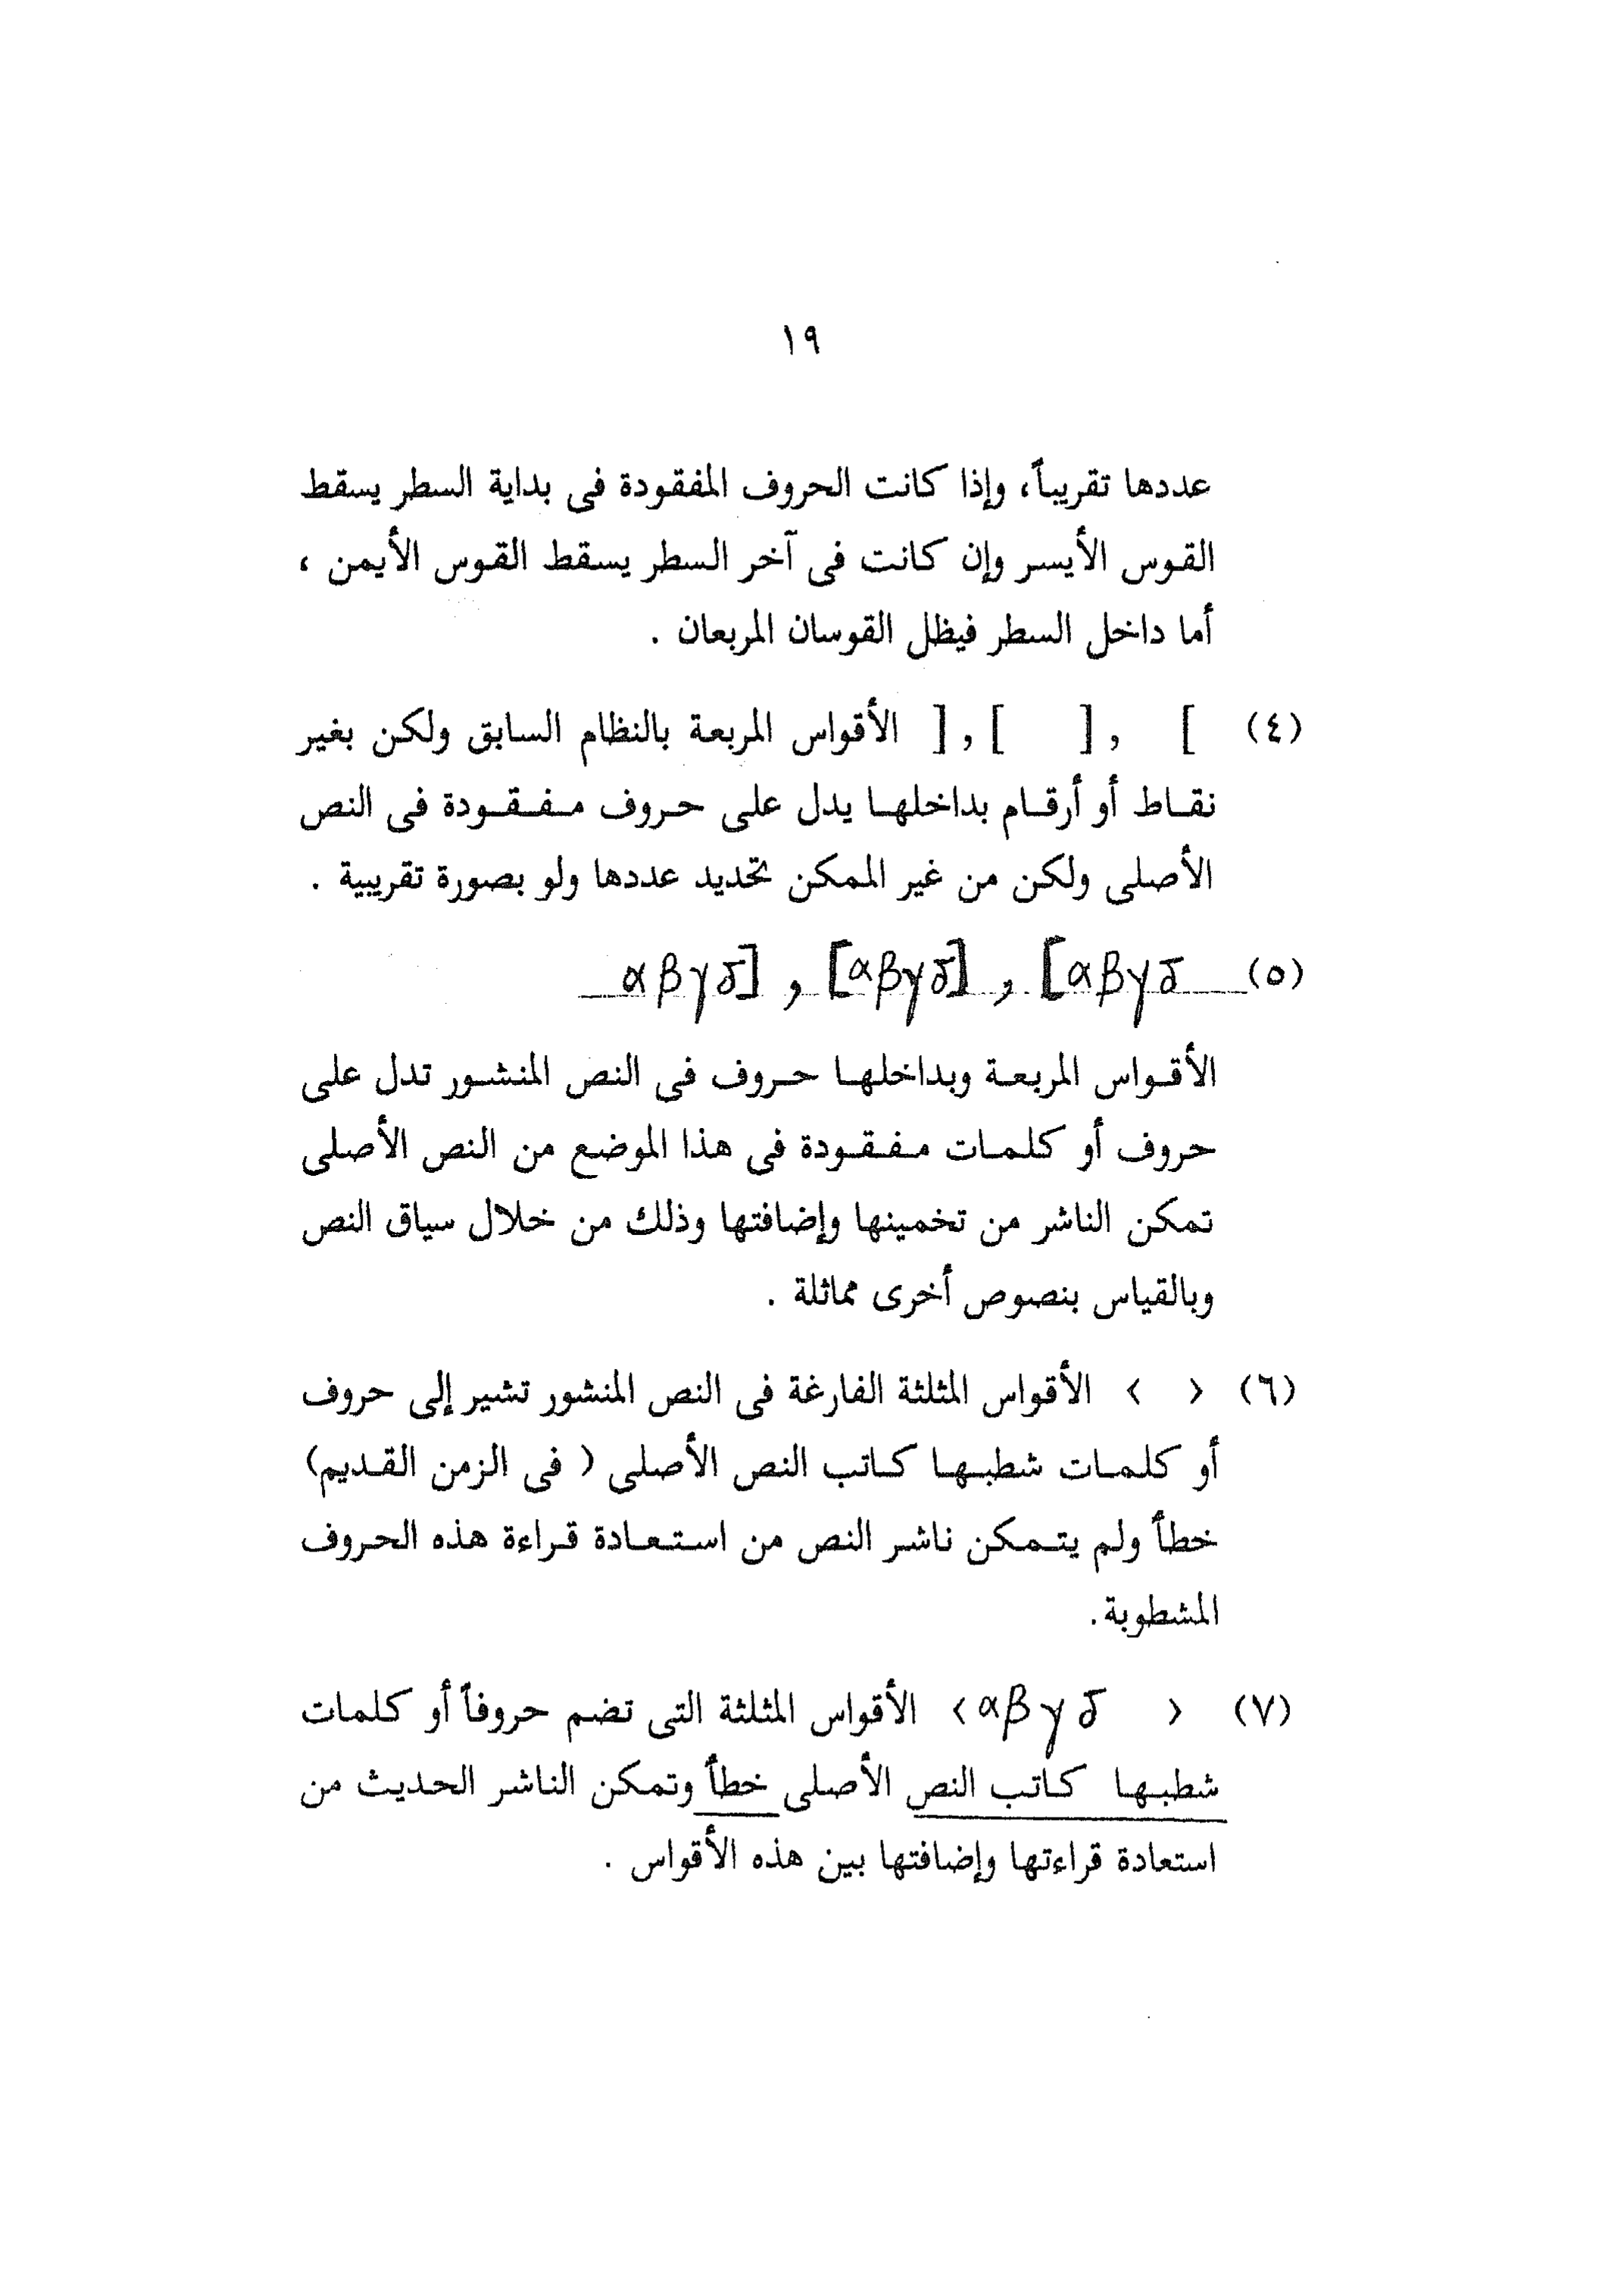 ١٩
عددها تقريباً، وإذا كانت الحروف المفقودة فى بداية السطر يسقط
القوس الأيسر وإن كانت فى آخر السطر يسقط القوس الأيمن ،
أما داخل السطر فيظل القوسان المربعان .
(٤) [ , [ ] , ] الأقواس المربعة بالنظام السابق ولكن بغير
نقاط أو أرقام بداخلها يدل على حروف مفقودة فى النص
الأصلى ولكن من غير الممكن تحديد عددها ولو بصورة تقريبية .
(٥) αβγδ] , [αβγδ] , [αβγδ
الأقواس المربعة وبداخلها حروف فى النص المنشور تدل على
حروف أو كلمات مفقودة فى هذا الموضع من النص الأصلى
تمكن الناشر من تخمينها وإضافتها وذلك من خلال سياق النص
وبالقياس بنصوص أخرى مماثلة .
(٦) < > الأقواس المثلثة الفارغة فى النص المنشور تشير إلى حروف
أو كلمات شطبها كاتب النص الأصلى ( فى الزمن القديم)
خطأ ولم يتمكن ناشر النص من استعادة قراءة هذه الحروف
المشطوبة.
(٧) <αβγδ > الأقواس المثلثة التى تضم حروفاً أو كلمات
شطبها كاتب النص الأصلى خطأ وتمكن الناشر الحديث من
استعادة قراءتها وإضافتها بين هذه الأقواس .